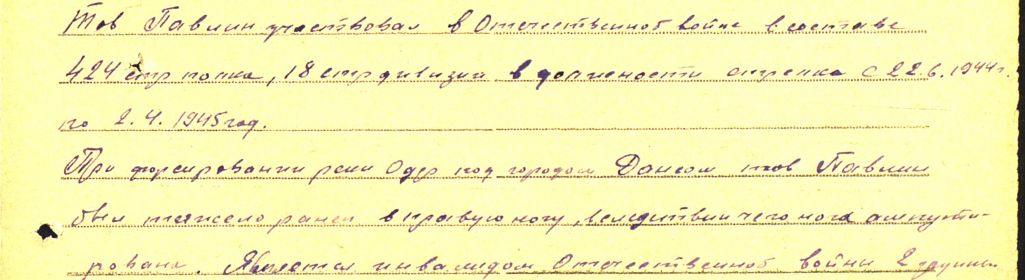 Тов Павлин участвовал в Отечественной войне в составе
424 стр полка, 18 стр дивизии в должности стрелка с 22.6.1944г.
по 2.4.1945 год.
При форсировании реки Одер под городом тов Павлин
был тяжело ранен в правую ногу, вследствии чего нога ампути-
рована. Является инвалидом Отечественной войны 2 группы